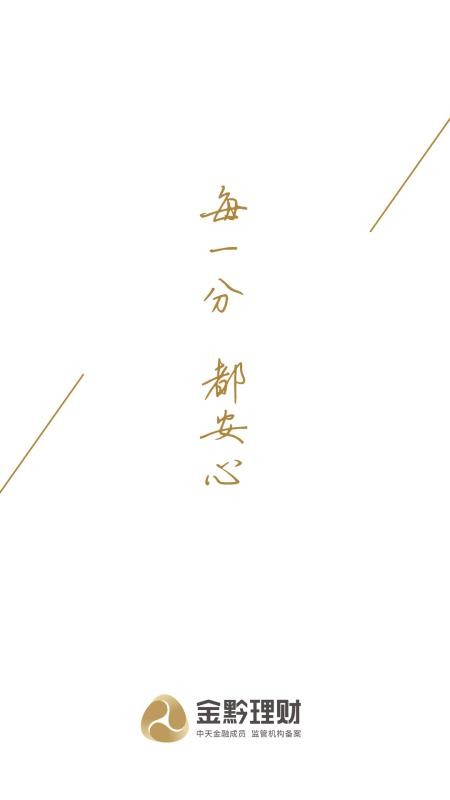 每一分
都安心
金黔理财
中天金融成员 监管机构备案